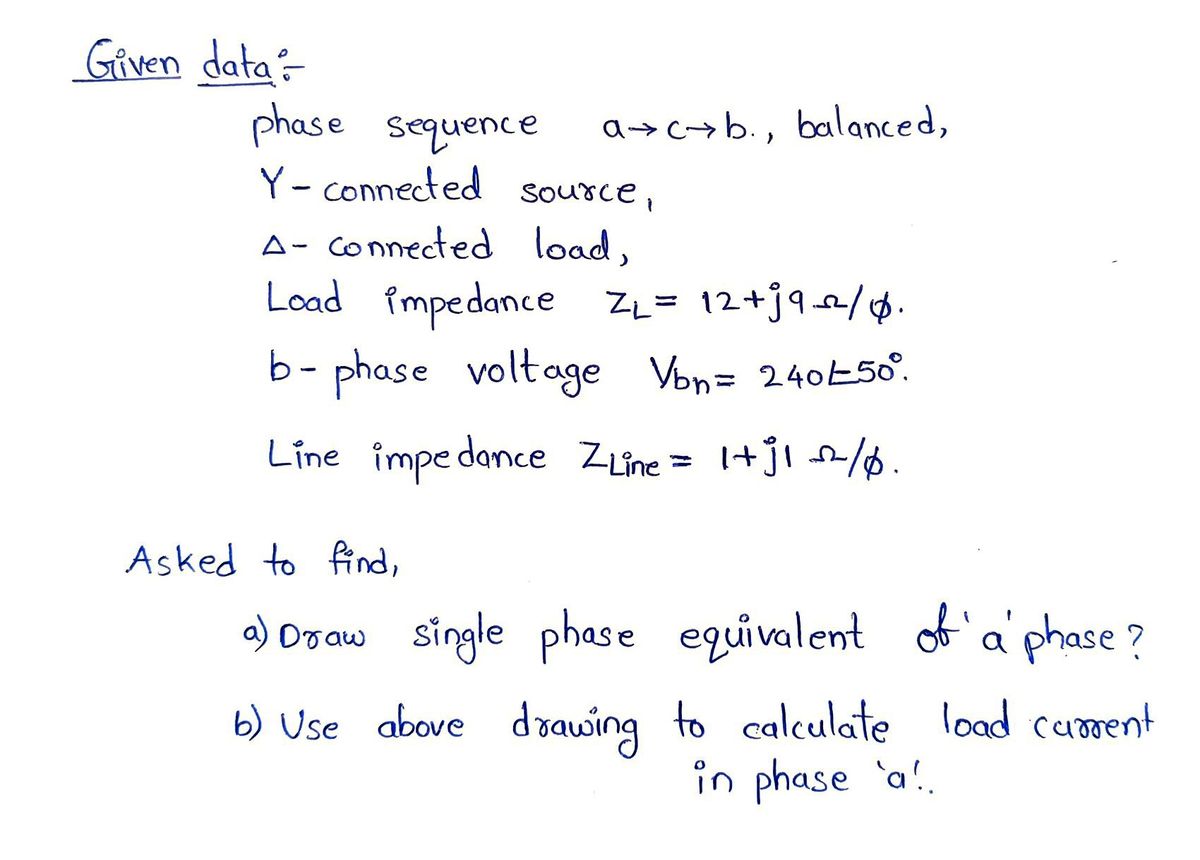 Given data :-
phase sequence a→c→b., balanced,
Y - connected source,
Δ - connected load,
Load impedance ZL = 12+j9 Ω/ϕ.
b - phase voltage Vbn = 240∠-50°.
Line impedance ZLine = 1+j1 Ω/ϕ.
Asked to find,
a) Draw single phase equivalent of 'a' phase?
b) Use above drawing to calculate load current
in phase 'a'.